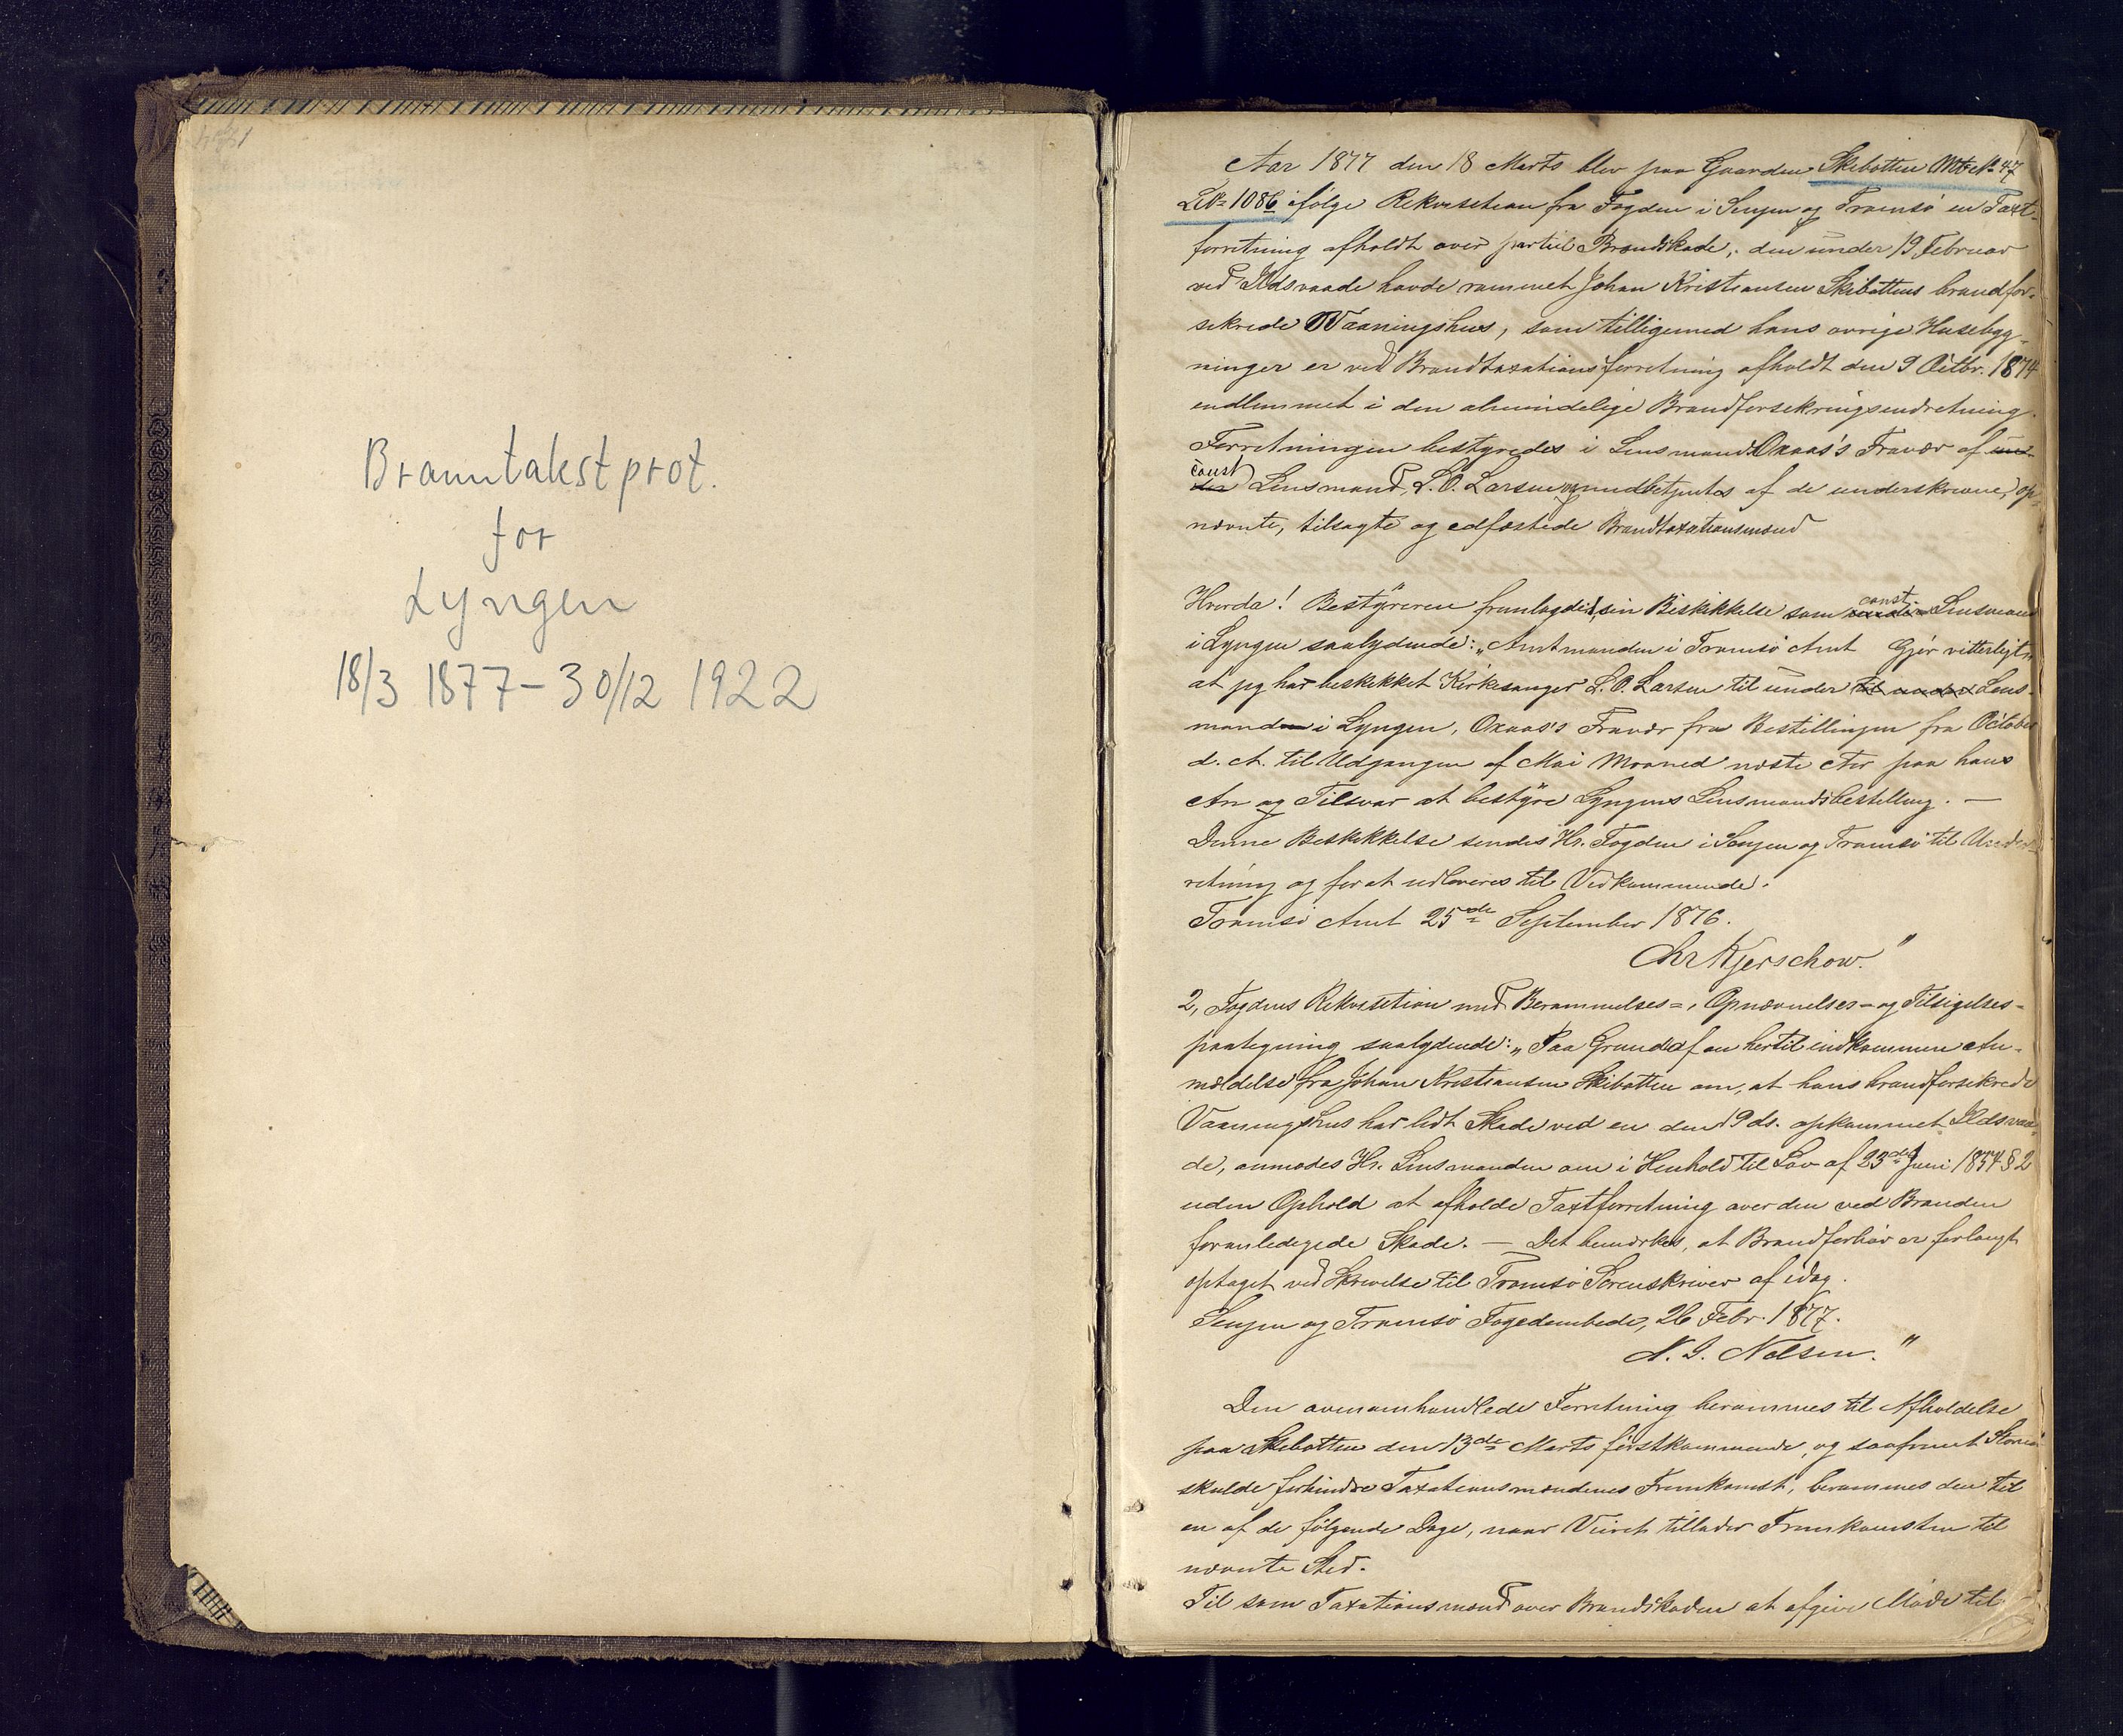 Branntakstprot.
for
Lyngen
18/3 1877 - 30/12 1922
Aar 1877 den 18 Marts blev paa Gaarden Skibotten Mtr. No 47
LNo 108 ifølge Rekvisition fra Fogden i Senjen og Tromsø en Taxt-
forretning afholdt over partiel Brandskade, den under 19 Februar
ved Ildsvaade havde rammet Johan Kristiansen Skibottens brandfor-
sikrede Vaaningshus, som tilligemed hans øvrige Husebyg-
ninger er ved Brandtaxationsforretning afholdt den 9 Octbr. 1874
indlemmet i den almindelige Brandforsikringsindretning.
Forretningen bestyredes i Lensmand Oxaas's Fravær af
const. Lensmand, L. O. Larsen og medbetjentes af de underskrevne, op-
nævnte, tilsagte og edfæstede Brandtaxationsmænd
Hvorda! Bestyreren fremlagde 1, sin Beskikkelse som const. Lensmand
i Lyngen saalydende: „Amtmanden i Tromsø Amt Gjør vitterligt„
at jeg har beskikket Kirkesanger L. O. Larsen til under til under Lens-
manden i Lyngen, Oxaas's Fravær fra Bestillingen fra October
d. A. til Udgangen af Mai Maaned næste Aar paa hans
An og Tilsvar at bestyre Lyngens Lensmandsbestilling. —
Denne Beskikkelse sendes Hr. Fogden i Senjen og Tromsø til Under-
retning og for at udleveres til Vedkommende.
Tromsø Amt 25de September 1876.
Chr Kjerschow."
2, Fogdens Rekvisition med Berammelses-, Opnævnelses- og Tilsigelses-
paategning saalydende: „Paa Grund af en hertil indkommen An-
meldelse fra Johan Kristiansen Skibotten om, at hans brandforsikrede
Vaaningshus har lidt Skade ved en den 19 ds. opkommet Ildsvaa-
de, anmodes Hr. Lensmanden om i Henhold til Lov af 23de Juni 1854 § 2
uden Ophold at afholde Taxtforretning over den ved Branden
foranledigede Skade. — Det bemærkes, at Brandforhør er forlangt
optaget ved Skrivelse til Tromsø Sorenskriver af idag.
Senjen og Tromsø Fogedembede, 26 Febr. 1877.
N. J. Nolsen."
Den ovenomhandlede Forretning berammes til Afholdelse
paa Skibotten den 13de Marts førstkommende, og saafremt Storm
skulde forhindre Taxationsmændenes Fremkomst, berammes den til
en af de følgende Dage, naar Veiret tillader Fremkomsten til
nævnte Sted.
Til som Taxationsmænd over Brandskaden at afgive Møde til